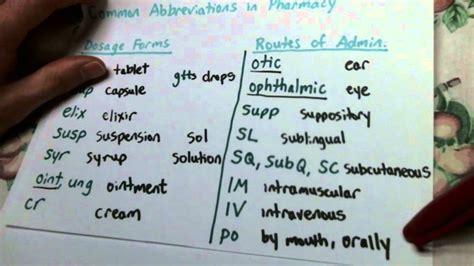 Common Abbreviations in Pharmacy
Dosage Forms
tablet gtts drops
capsule
elix elixir
susp suspension sol
syr syrup solution
oint, ung ointment
cr cream
Routes of Admin.
otic ear
ophthalmic eye
supp suppository
SL sublingual
SQ, SubQ, SC subcutaneous
IM intramuscular
IV intravenous
po by mouth, orally